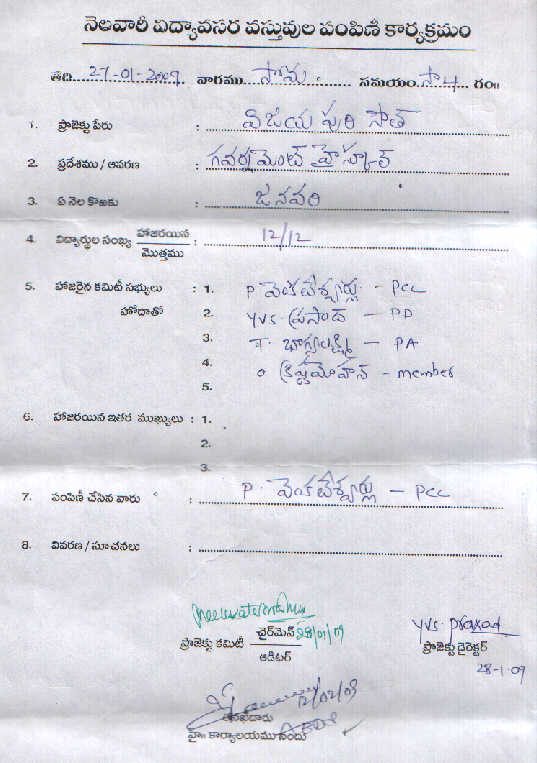 నెలవారీ విద్యావసర వస్తువుల పంపిణీ కార్యక్రమం
తేది 27-01-2009 వారము సోమ సమయం సా 4 గం॥
1. ప్రాజెక్టు పేరు : విజయ పురి సౌత్
2. ప్రదేశము / ఆవరణ : గవర్నమెంట్ హైస్కూల్
3. ఏ నెల కొఱకు : జనవరి
4. విద్యార్థుల సంఖ్య హాజరయిన / మొత్తము : 12/12
5. హాజరైన కమిటీ సభ్యులు హోదాతో : 1. P వెంకటేశ్వర్లు - PCC
2. YVS ప్రసాద్ - PD
3. భాగ్యలక్ష్మి - PA
4. కృష్ణమోహన్ - member
5.
6. హాజరయిన ఇతర ముఖ్యులు : 1.
2.
3.
7. పంపిణీ చేసిన వారు : P. వెంకటేశ్వర్లు - PCC
8. వివరణ / సూచనలు :
28/01/09
ప్రాజెక్టు కమిటీ చైర్‌మెన్ / ఆడిటర్
YVS Prasad
ప్రాజెక్టు డైరెక్టర్
28-1-09
12/02/09
తనిఖీదారు
హై॥ కార్యాలయము నందు